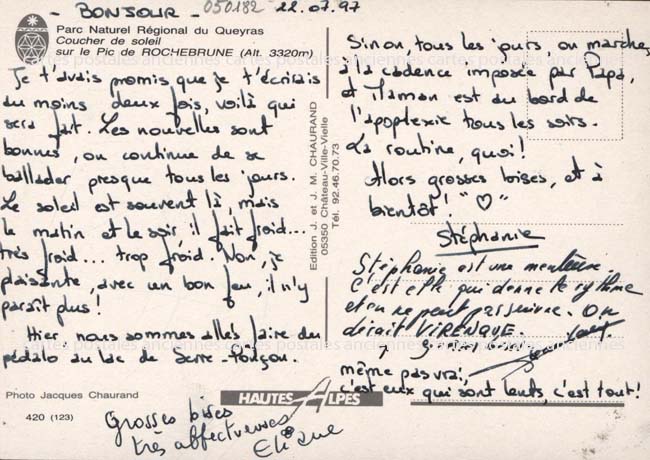 - BONJOUR - 050182 22.07.97
Parc Naturel Régional du Queyras
Coucher de soleil
sur le Pic de ROCHEBRUNE (Alt. 3320m)
Je t'avais promis que je t'écrirais
au moins deux fois, voilà qui
sera fait. Les nouvelles sont
bonnes, on continue de se
ballader presque tous les jours.
Le soleil est souvent là, mais
le matin et le soir il fait froid...
très froid... trop froid. Non, je
plaisante, avec un bon feu, il n'y
paraît plus !
Hier nous sommes allés faire du
pédalo au lac de Serre-Ponçon.
Photo Jacques Chaurand
420 (123)
Grosses bises
très affectueuses
Eliane
Edition J. et J. M. CHAURAND
05350 Château-Ville-Vieille
Tél. 92.46.70.73
HAUTES ALPES
Sinon, tous les jours, on marche
à la cadence imposée par Papa,
et Maman est au bord de
l'apoplexie tous les soirs.
La routine, quoi !
Alors grosses bises, et à
bientôt ! "♡"
Stéphanie
Stéphanie est une menteuse.
C'est elle qui donne le rythme
et on ne peut pas suivre. On
dirait VIRENQUE.
même pas vrai,
c'est eux qui sont lents, c'est tout !
cartes postales anciennes